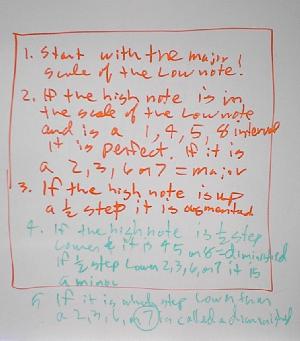 1. Start with the major
scale of the Low note!
2. If the high note is in
the scale of the Low note
and is a 1, 4, 5, 8 interval
it is perfect. If it is
a 2, 3, 6 or 7 = major
3. If the high note is up
a ½ step it is augmented
4. If the high note is ½ step
lower & it is 4 5 or 8 = diminished
if ½ step lower 2, 3, 6, or 7 it is
a minor
5 If it is whole step lower than
a 2, 3, 6, or 7 is called a diminished